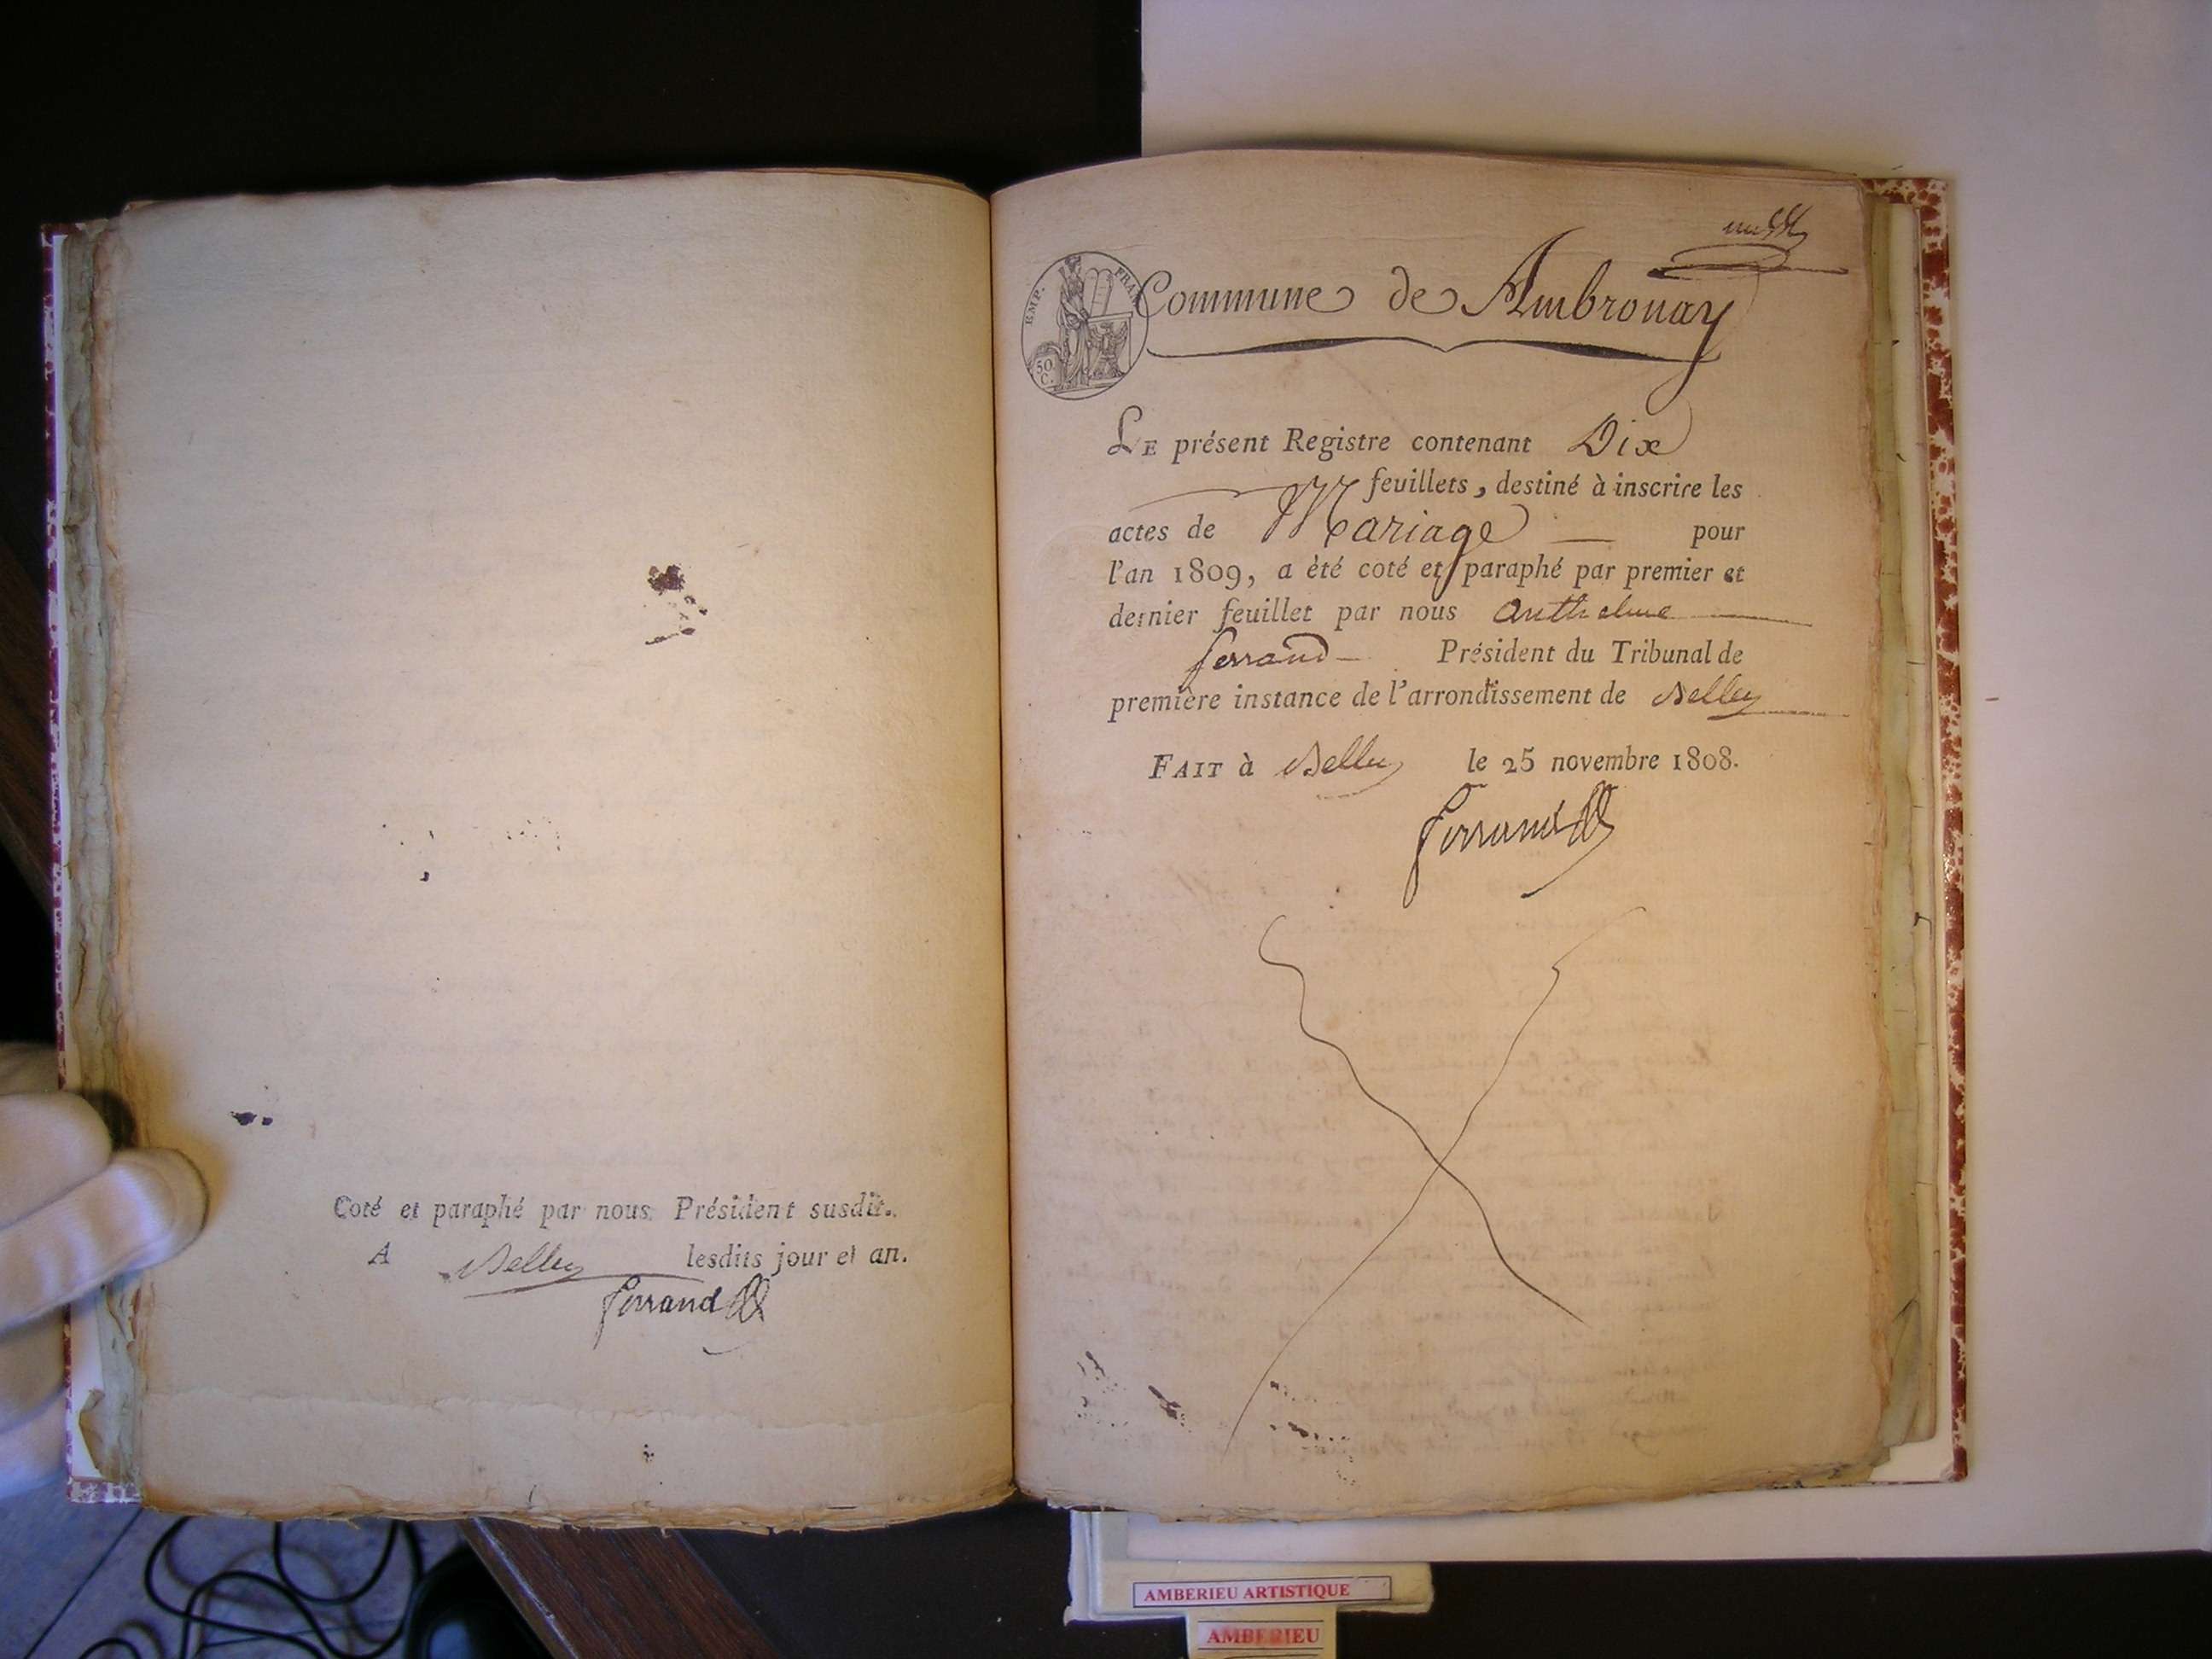 Coté et paraphé par nous Président susdit.
A Belley lesdits jour et an.
Ferrand
un
EMP. FRAN
50 C.
Commune de Ambronay
LE présent Registre contenant Dix
feuillets, destiné à inscrire les
actes de Mariage pour
l'an 1809, a été coté et paraphé par premier et
dernier feuillet par nous anthelme
ferrand Président du Tribunal de
première instance de l'arrondissement de Belley
FAIT à Belley le 25 novembre 1808.
Ferrand
AMBERIEU ARTISTIQUE
AMBERIEU